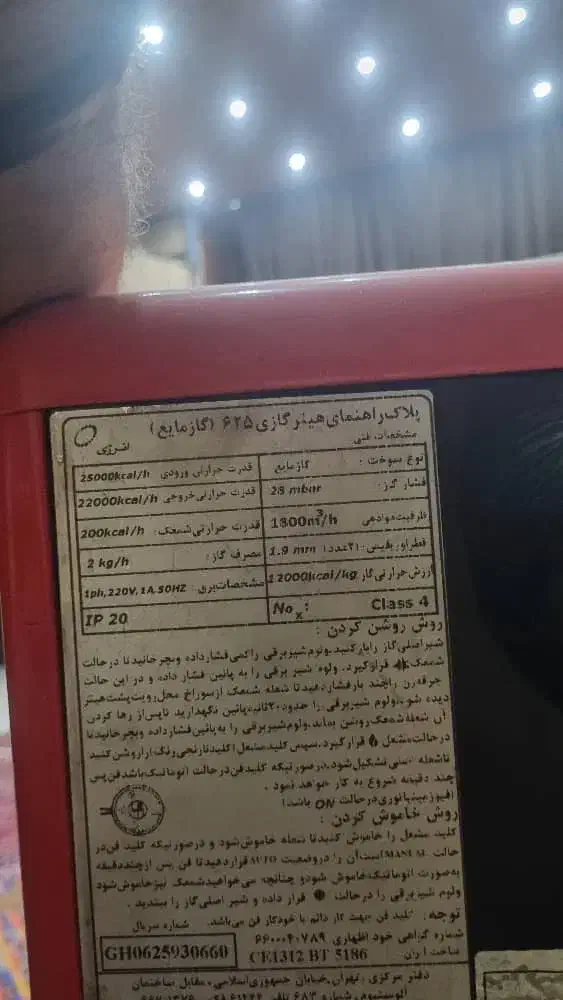 پلاک راهنمای هیتر گازی ۶۲۵ (گاز مایع)
انرژی
مشخصات فنی
نوع سوخت : گاز مایع
قدرت حرارتی ورودی 25000kcal/h
فشار گاز : 28 mbar
قدرت حرارتی خروجی 22000kcal/h
ظرفیت هوادهی 1800m³/h
قدرت حرارتی شمعک: 200kcal/h
قطر اوریفیس (۲ عدد) 1.9 mm
مصرف گاز : 2 kg/h
ارزش حرارتی گاز 12000kcal/kg
مشخصات برق : 1ph,220V,1A,50HZ
Noₓ: Class 4
IP 20
روش روشن کردن :
شیر اصلی گاز را باز کنید، ولوم شیر برقی را کمی فشار داده و بچرخانید تا در حالت
شمعک قرار گیرد. ولوم شیر برقی را به پائین فشار داده و در این حالت
جرقه زن را چند بار فشار دهید تا شعله شمعک از سوراخ محل رویت پشت هیتر
دیده شود. ولوم شیر برقی را حدود ۲۰ ثانیه پائین نگهدارید تا پس از رها کردن
آن شعله شمعک روشن بماند. ولوم شیر برقی را به پائین فشار داده و بچرخانید تا
در حالت مشعل قرار گیرد. سپس کلید مشعل (کلید نارنجی رنگ) را روشن کنید
تا شعله اصلی تشکیل شود. در صورتیکه کلید فن در حالت اتوماتیک باشد فن پس
چند دقیقه شروع به کار خواهد نمود .
(فیوز مینیاتوری در حالت ON باشد)
روش خاموش کردن :
کلید مشعل را خاموش کنید تا شعله خاموش شود و در صورتیکه کلید فن در
حالت MANUAL است آن را در وضعیت AUTO قرار دهید تا فن پس از چند دقیقه
به صورت اتوماتیک خاموش شود و چنانچه می خواهید شمعک نیز خاموش شود
ولوم شیر برقی را در حالت ● قرار داده و شیر اصلی گاز را ببندید .
توجه : کلید فن جهت کار دائم یا خودکار فن می باشد.
شماره سریال
شماره گواهی خود اظهاری ۶۶۰۰۰۴۰۷۸۹
GH0625930660
ساخت ایران CE1312 BT 5186
دفتر مرکزی : تهران، خیابان جمهوری اسلامی، مقابل ساختمان
آلومینیوم، شماره ۶۸۳ تلفن